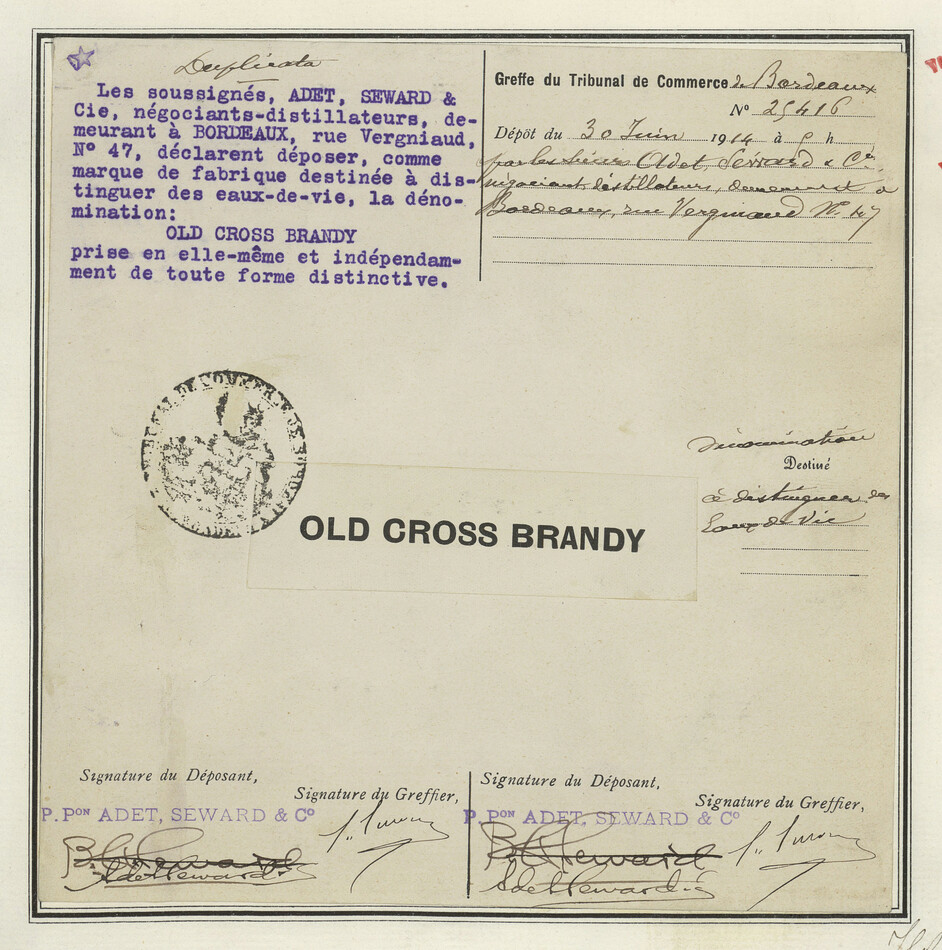 Duplicata
Les soussignés, ADET, SEWARD &
Cie, négociants-distillateurs, de-
meurant à BORDEAUX, rue Vergniaud,
N° 47, déclarent déposer, comme
marque de fabrique destinée à dis-
tinguer des eaux-de-vie, la déno-
mination:
OLD CROSS BRANDY
prise en elle-même et indépendam-
ment de toute forme distinctive.
Greffe du Tribunal de Commerce de Bordeaux
N° 25416
Dépôt du 30 Juin 1914 à h
par les Sieurs Adet, Seward & Cie,
négociants distillateurs, demeurant à
Bordeaux, rue Vergniaud N° 47
TRIBUNAL DE COMMERCE DE BORDEAUX
Dénomination
Destiné
à distinguer des
Eaux de Vie
OLD CROSS BRANDY
Signature du Déposant,
Signature du Greffier,
P. PON ADET, SEWARD & C°
Adet Seward
Signature du Déposant,
Signature du Greffier,
P. PON ADET, SEWARD & C°
Adet Seward